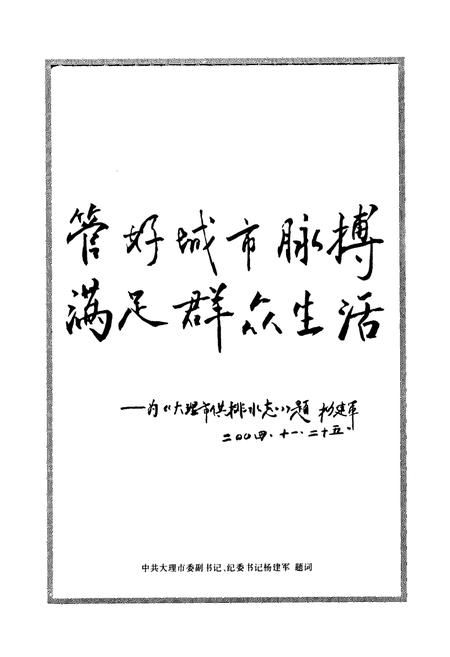 管好城市脉搏
满足群众生活
——为《大理市供排水志》题 杨建军
二〇〇四.十一.二十五.
中共大理市委副书记、纪委书记杨建军 题词